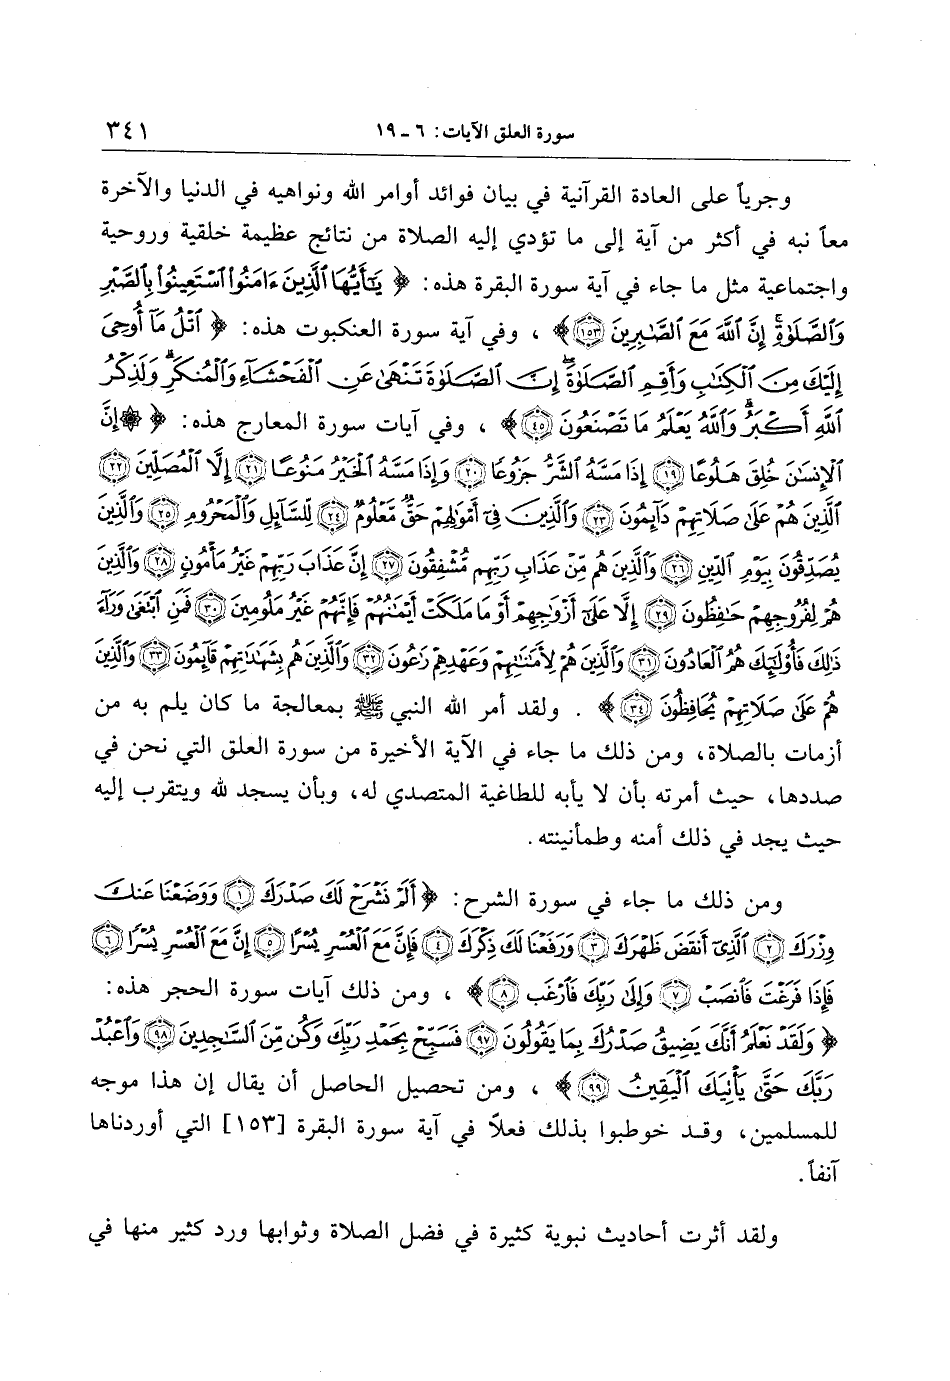 سورة العلق الآيات: ٦ ـ ١٩
٣٤١
وجرياً على العادة القرآنية في بيان فوائد أوامر الله ونواهيه في الدنيا والآخرة
معاً نبه في أكثر من آية إلى ما تؤدي إليه الصلاة من نتائج عظيمة خلقية وروحية
واجتماعية مثل ما جاء في آية سورة البقرة هذه: ﴿ يَٰٓأَيُّهَا ٱلَّذِينَ ءَامَنُوا۟ ٱسْتَعِينُوا۟ بِٱلصَّبْرِ
وَٱلصَّلَوٰةِ ۚ إِنَّ ٱللَّهَ مَعَ ٱلصَّٰبِرِينَ ١٥٣ ﴾ ، وفي آية سورة العنكبوت هذه: ﴿ ٱتْلُ مَآ أُوحِىَ
إِلَيْكَ مِنَ ٱلْكِتَٰبِ وَأَقِمِ ٱلصَّلَوٰةَ ۖ إِنَّ ٱلصَّلَوٰةَ تَنْهَىٰ عَنِ ٱلْفَحْشَآءِ وَٱلْمُنكَرِ ۗ وَلَذِكْرُ
ٱللَّهِ أَكْبَرُ ۗ وَٱللَّهُ يَعْلَمُ مَا تَصْنَعُونَ ٤٥ ﴾ ، وفي آيات سورة المعارج هذه: ﴿ ۞ إِنَّ
ٱلْإِنسَٰنَ خُلِقَ هَلُوعًا ١٩ إِذَا مَسَّهُ ٱلشَّرُّ جَزُوعًا ٢٠ وَإِذَا مَسَّهُ ٱلْخَيْرُ مَنُوعًا ٢١ إِلَّا ٱلْمُصَلِّينَ ٢٢
ٱلَّذِينَ هُمْ عَلَىٰ صَلَاتِهِمْ دَآئِمُونَ ٢٣ وَٱلَّذِينَ فِىٓ أَمْوَٰلِهِمْ حَقٌّ مَّعْلُومٌ ٢٤ لِّلسَّآئِلِ وَٱلْمَحْرُومِ ٢٥ وَٱلَّذِينَ
يُصَدِّقُونَ بِيَوْمِ ٱلدِّينِ ٢٦ وَٱلَّذِينَ هُم مِّنْ عَذَابِ رَبِّهِم مُّشْفِقُونَ ٢٧ إِنَّ عَذَابَ رَبِّهِمْ غَيْرُ مَأْمُونٍ ٢٨ وَٱلَّذِينَ
هُمْ لِفُرُوجِهِمْ حَٰفِظُونَ ٢٩ إِلَّا عَلَىٰٓ أَزْوَٰجِهِمْ أَوْ مَا مَلَكَتْ أَيْمَٰنُهُمْ فَإِنَّهُمْ غَيْرُ مَلُومِينَ ٣٠ فَمَنِ ٱبْتَغَىٰ وَرَآءَ
ذَٰلِكَ فَأُو۟لَٰٓئِكَ هُمُ ٱلْعَادُونَ ٣١ وَٱلَّذِينَ هُمْ لِأَمَٰنَٰتِهِمْ وَعَهْدِهِمْ رَٰعُونَ ٣٢ وَٱلَّذِينَ هُم بِشَهَٰدَٰتِهِمْ قَآئِمُونَ ٣٣ وَٱلَّذِينَ
هُمْ عَلَىٰ صَلَاتِهِمْ يُحَافِظُونَ ٣٤ ﴾ . ولقد أمر الله النبي ﷺ بمعالجة ما كان يلم به من
أزمات بالصلاة، ومن ذلك ما جاء في الآية الأخيرة من سورة العلق التي نحن في
صددها، حيث أمرته بأن لا يأبه للطاغية المتصدي له، وبأن يسجد لله ويتقرب إليه
حيث يجد في ذلك أمنه وطمأنينته.
ومن ذلك ما جاء في سورة الشرح: ﴿ أَلَمْ نَشْرَحْ لَكَ صَدْرَكَ ١ وَوَضَعْنَا عَنكَ
وِزْرَكَ ٢ ٱلَّذِىٓ أَنقَضَ ظَهْرَكَ ٣ وَرَفَعْنَا لَكَ ذِكْرَكَ ٤ فَإِنَّ مَعَ ٱلْعُسْرِ يُسْرًا ٥ إِنَّ مَعَ ٱلْعُسْرِ يُسْرًا ٦
فَإِذَا فَرَغْتَ فَٱنصَبْ ٧ وَإِلَىٰ رَبِّكَ فَٱرْغَب ٨ ﴾ ، ومن ذلك آيات سورة الحجر هذه:
﴿ وَلَقَدْ نَعْلَمُ أَنَّكَ يَضِيقُ صَدْرُكَ بِمَا يَقُولُونَ ٩٧ فَسَبِّحْ بِحَمْدِ رَبِّكَ وَكُن مِّنَ ٱلسَّٰجِدِينَ ٩٨ وَٱعْبُدْ
رَبَّكَ حَتَّىٰ يَأْتِيَكَ ٱلْيَقِينُ ٩٩ ﴾ ، ومن تحصيل الحاصل أن يقال إن هذا موجه
للمسلمين، وقد خوطبوا بذلك فعلاً في آية سورة البقرة [١٥٣] التي أوردناها
آنفاً.
ولقد أثرت أحاديث نبوية كثيرة في فضل الصلاة وثوابها ورد كثير منها في